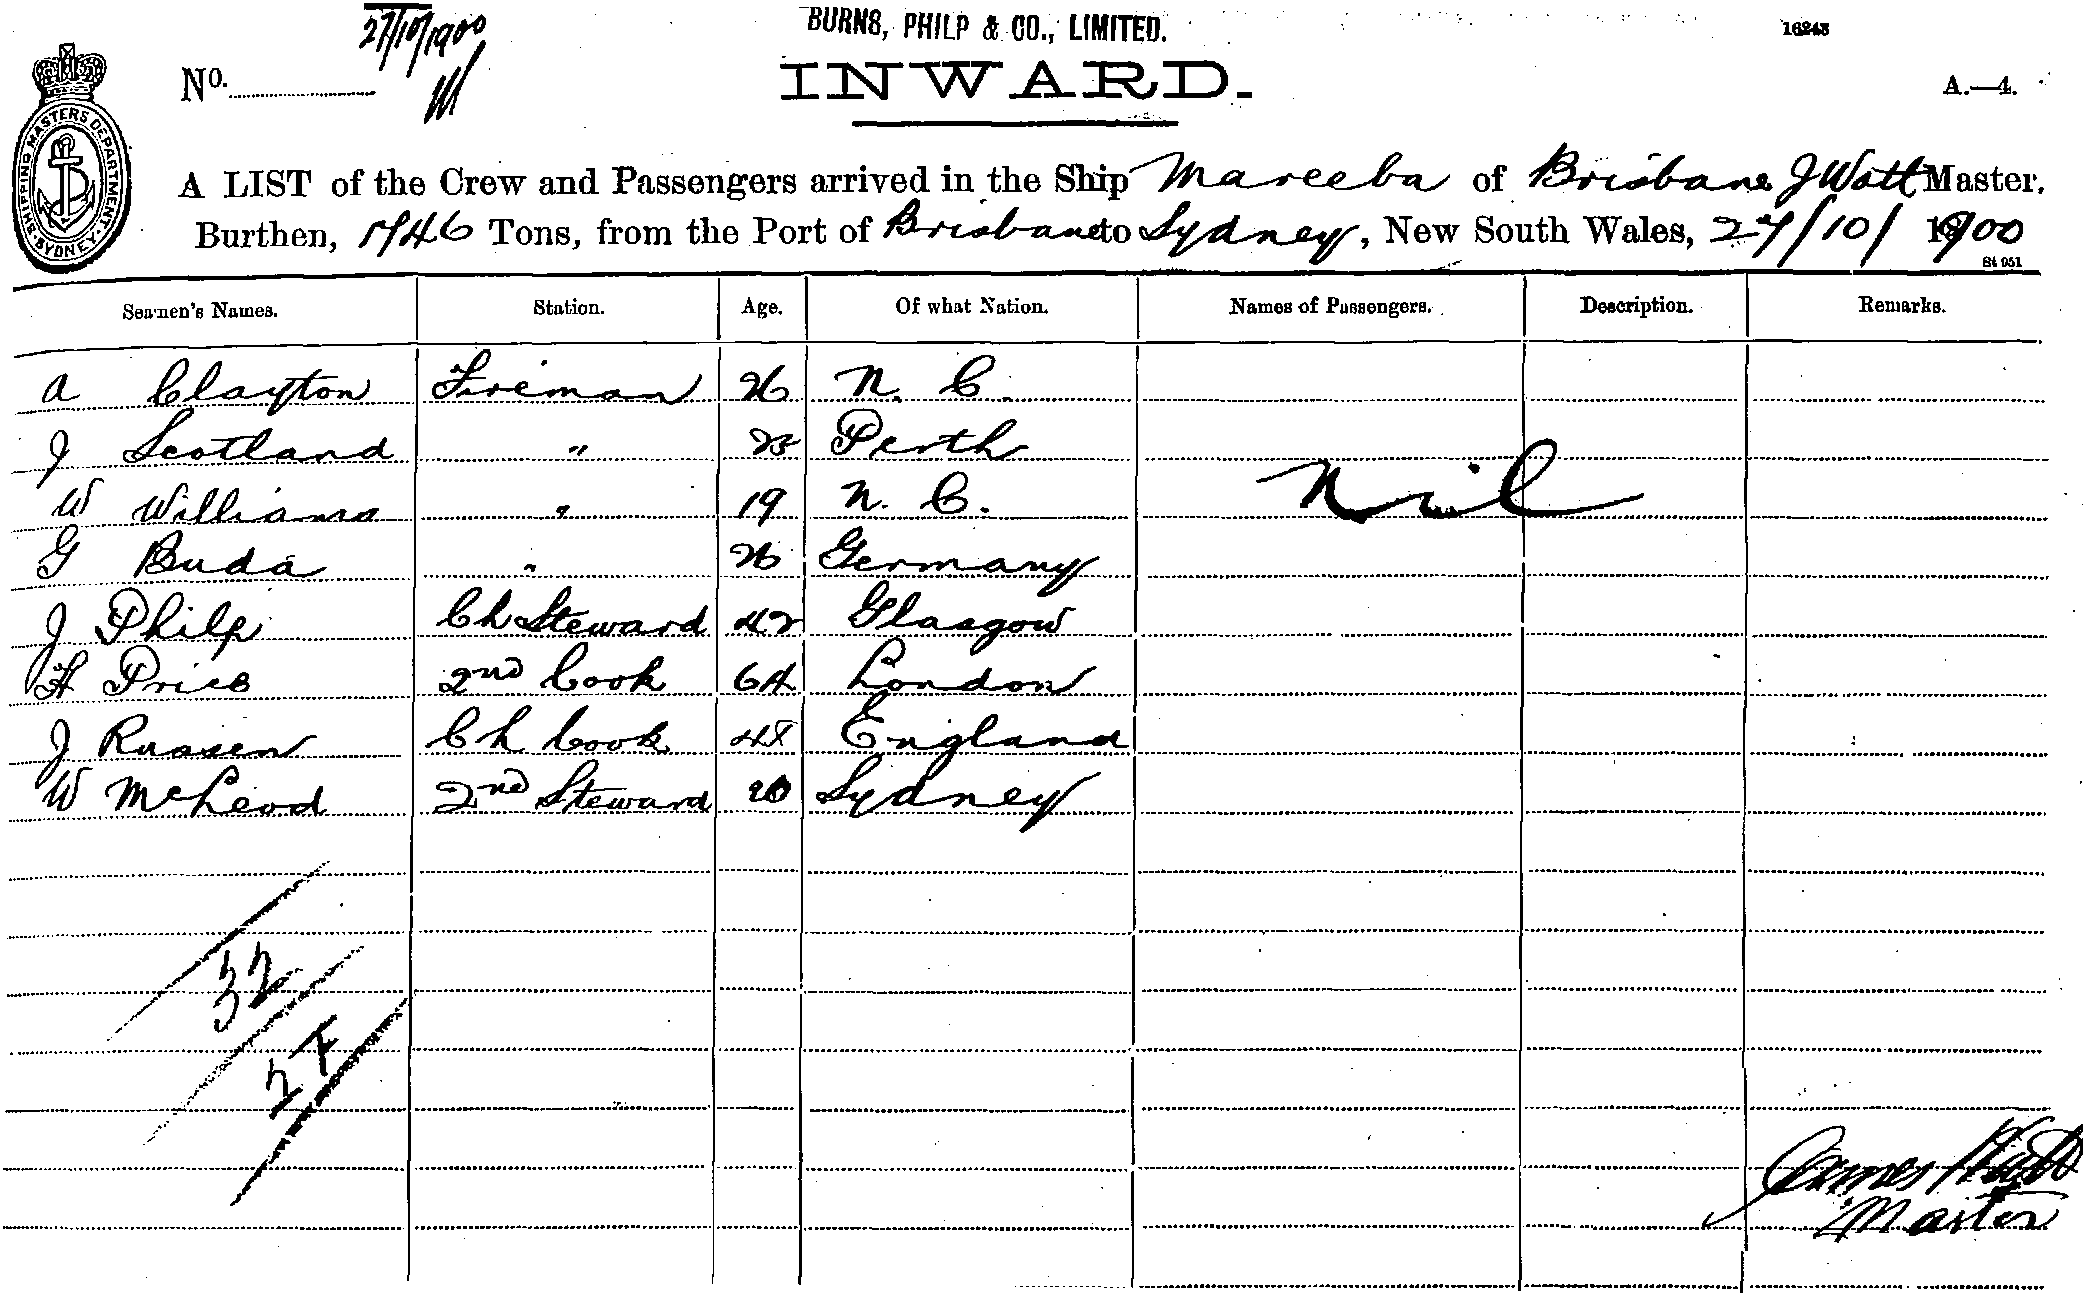 27/10/1900
BURNS, PHILP & CO., LIMITED.
16245
No.
INWARD.
A.—4.
SHIPPING MASTERS DEPARTMENT. SYDNEY.
A LIST of the Crew and Passengers arrived in the Ship Mareeba of Brisbane J Watt Master.
Burthen, Tons, from the Port of Brisbane to Sydney, New South Wales, 27/10/ 1900
St 951
Seamen's Names. Station. Age. Of what Nation. Names of Passengers. Description. Remarks.
A Clayton Fireman 26 N. C.
J Scotland " 23 Perth
W Williams " 19 N. C.
Nil
G Buda " 26 Germany
J Philp Ch Steward 42 Glasgow
H Price 2nd Cook 64 London
J Russen Ch Cook 48 England
W McLeod 2nd Steward 20 Sydney
32
27
James Watt
Master